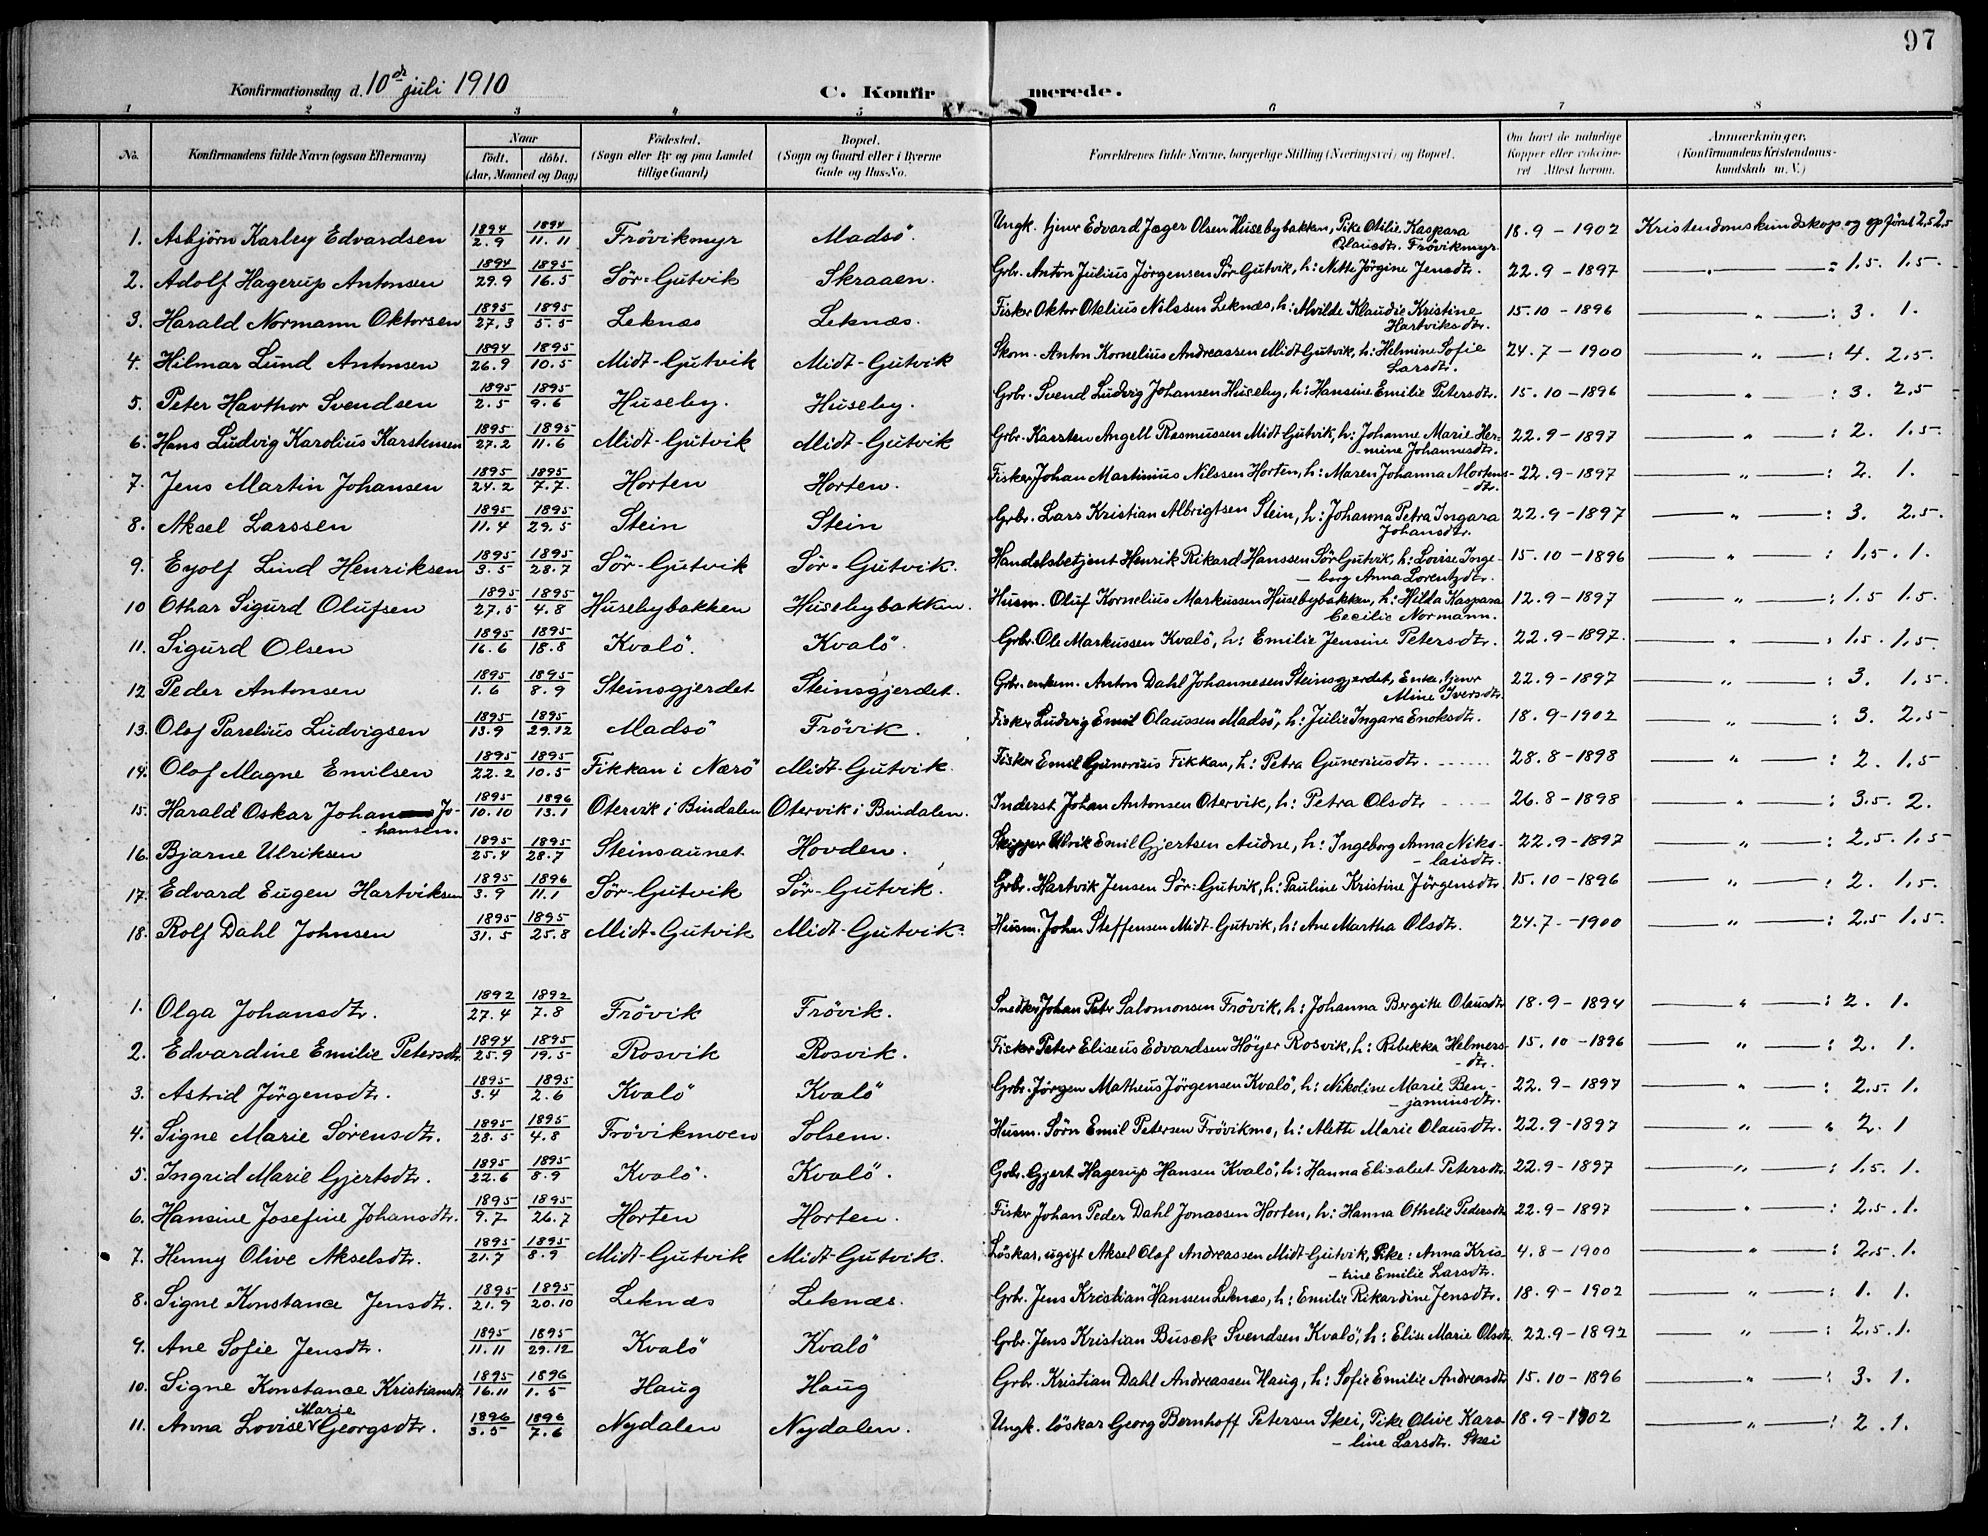 97
Konfirmationsdag d. 10de juli 1910
C. Konfirmerede.
1 2 3 4 5 6 7 8
No. | Konfirmandens fulde Navn (ogsaa Efternavn) | Naar födt. döbt. (Aar, Maaned og Dag) | Födested. (Sogn eller By og paa Landet tillige Gaard) | Bopæl. (Sogn og Gaard eller i Byerne Gade og Hus-No. | Forældrenes fulde Navne, borgerlige Stilling (Næringsvei) og Bopæl. | Om havt de naturlige Kopper eller vakcineret Attest herom. | Anmærkninger. (Konfirmandens Kristendomskundskab m. V.)
1. Asbjörn Karley Edvardsen 1894 2.9 1894 11.11 Frövikmyr Madsö. Ungk. tjener Edvard Jæger Olsen Husebybakken, Pike Otilie Kaspara Olausdtr. Frövikmyr 18.9 - 1902 Kristendomskundskap og opförsel 2,5 2,5
2. Adolf Hagerup Antonsen 1894 29.9 1895 16.5 Sör-Gutvik Skraaen. Grbr. Anton Julius Jörgensen Sör-Gutvik, h: Nette Jörgine Jensdtr. 22.9 - 1897 — „ — : 1,5. 1,5.
3. Harald Normann Oktorsen 1895 27.3 1895 5.5 Leknæs Leknæs. Fisker Oktor Otelius Nilssen Leknæs, h: Alvilde Klaudie Kristine Hartviksdtr. 15.10 - 1896 — „ — : 3. 1.
4. Hilmar Lund Antonsen 1894 26.9 1895 10.5 Midt-Gutvik Midt-Gutvik Skom. Anton Kornelius Andreassen Midt Gutvik, h: Helmine Sofie Larsdtr. 24.7 - 1900 — „ — : 4. 2,5.
5. Peter Havthor Svendsen 1895 2.5 1895 9.6 Huseby. Huseby. Grbr. Svend Ludvig Johansen Huseby, h: Hansine Emilie Petersdtr. 15.10 - 1896 — „ — : 3. 2,5
6. Hans Ludvig Karolius Karstensen 1895 27.2 1895 11.6 Midt-Gutvik Midt-Gutvik Grbr. Karsten Angell Rasmussen Midt Gutvik, h: Johanne Marie Hermine Johannesdtr. 22.9 - 1897 — „ — : 2. 1,5.
7. Jens Martin Johansen 1895 24.2 1895 7.7. Horten Horten. Fisker Johan Martinius Nilssen Horten, h: Maren Johanna Mortensdtr. 22.9 - 1897 — „ — : 2. 1.
8. Aksel Larssen 1895 11.4 1895 29.5 Stein Stein Grbr. Lars Kristian Albrigtsen Stein, h: Johanna Petra Ingara Johansdtr. 22.9 - 1897 — „ — : 3. 2,5.
9. Eyolf Lind Henriksen 1895 3.5 1895 28.7 Sör-Gutvik Sör-Gutvik. Handelsbetjent Henrik Rikard Hanssen Sör Gutvik, h: Lovise Ingeborg Anna Lorentzdtr. 15.10 - 1896 — „ — : 1,5. 1.
10 Othar Sigurd Olufsen 1895 27.5 1895 4.8 Husebybakken Husebybakken. Husm. Oluf Kornelius Markussen Husebybakken, h: Hilda Kaspara Cecilie Normann. 12.9 - 1897 — „ — : 1,5 1,5.
11. Sigurd Olsen 1895 16.6 1895 18.8 Kvalö. Kvalö. Grbr. Ole Markussen Kvalö, h: Emilie Jensine Petersdtr. 22.9 - 1897. — „ — : 1,5. 1,5.
12 Peder Antonsen 1895 1.6 1895 8.9 Steinsgjerdet Steinsgjerdet. Grbr. enkem. Anton Dahl Johannesen Steinsgjerdet, Enke, tjener Mine Iversdtr. 22.9 - 1897 — „ — : 3. 1,5.
13. Olaf Parelius Ludvigsen 1895 13.9 1895 29.12 Madsö Frövik. Fisker Ludvig Emil Olaussen Madsö, h: Julie Ingara Enoksdtr. 18.9 - 1902 — „ — : 3. 2,5
14. Olaf Magne Emilsen 1895 22.2 1895 10.5 Fikkan i Nærö Midt-Gutvik. Fisker Emil Gunerius Fikkan, h: Petra Guneriusdtr. 28.8 - 1898 — „ — : 2. 1,5
15. Harald Oskar Johan Johansen. 1895 10.10 1896 13.1 Otervik i Bindalen Otervik i Bindalen. Inderst Johan Antonsen Otervik, h: Petra Olsdtr 26.8 - 1898 — „ — : 3,5. 2.
16. Bjarne Ulriksen 1895 25.4 1895 28.7 Steinsaunet Hovden. Skipper Ulrik Emil Gjertsen Audne, h: Ingeborg Anna Nikolaisdtr. 22.9 - 1897 — „ — : 2,5. 1,5
17. Edvard Eugen Hartviksen 1895 3.9 1896 11.1 Sör-Gutvik Sör-Gutvik. Grbr. Hartvik Jensen Sör-Gutvik, h: Pauline Kristine Jörgensdtr. 15.10 - 1896 — „ — : 2. 1,5.
18. Rolf Dahl Johnsen 1895 31.5 1895 25.8 Midt-Gutvik Midt-Gutvik. Husm. John Steffensen Midt-Gutvik, h: Ane Martha Olsdtr. 24.7. - 1900 — „ — : 2,5 1,5.
1. Olga Johansdtr. 1892 27.4 1892 7.8 Frövik Frövik. Snedker Johan Peter Salomonsen Frövik, h: Johanna Bergitte Olausdtr 18.9 - 1894 — „ — : 2. 1.
2. Edvardine Emilie Petersdtr 1894 25.9 1895 19.5 Rosvik Rosvik. Fisker Peter Eliseus Edvardsen Höyer Rosvik, h: Rebekka Helmersdtr. 15.10 - 1896 — „ — : 2. 1.
3. Astrid Jörgensdtr. 1895 3.4 1895 2.6 Kvalö Kvalö Grbr. Jörgen Matheus Jörgensen Kvalö, h: Nikoline Marie Benjaminsdtr. 22.9 - 1897 — „ — : 2,5. 1.
4. Signe Marie Sörensdtr. 1895 28.5 1895 4.8 Frövikmoen Solsem. Husm. Sörn Emil Petersen Frövikmo, h: Mette Marie Olausdtr. 22.9 - 1897 — „ — „ 2. 1
5. Ingrid Marie Gjertsdtr. 1895 22.6 1895 8.9 Kvalö. Kvalö. Grbr. Gjert Hagerup Hansen Kvalö, h: Hanna Elisabet Petersdtr 22.9 - 1897 — „ — : 1,5. 1.
6. Hansine Josefine Johansdtr. 1895 9.7 1895 26.7 Horten Horten. Fisker Johan Peder Dahl Jonassen Horten, h: Hanna Othelie Pedersdtr 22.9 - 1897 — „ — : 2,5. 1.
7. Henny Olive Akselsdtr. 1895 21.7 1895 8.9 Midt-Gutvik Midt-Gutvik. Löskar, ugift Aksel Olaf Andreassen Midt-Gutvik, Pike: Anna Kristine Emilie Larsdtr. 4.8 - 1900 — „ — : 2,5. 1.
8. Signe Konstance Jensdtr. 1895 21.9 1895 20.10 Leknæs Leknæs. Grbr. Jens Kristian Hanssen Leknæs, h: Emilie Rikardine Jensdtr. 18.9 - 1902 — „ — : 1. 1.
9. Ane Sofie Jensdtr. 1895 11.11 1895 29.12 Kvalö Kvalö Grbr. Jens Kristian Busck Svendsen Kvalö, h: Elise Marie Olsdtr 22.9 - 1892 — „ — : 2,5. 1.
10. Signe Konstance Kristiansdtr 1895 16.11 1896 1.5 Haug Haug Grbr. Kristian Dahl Andreassen Haug, h: Sofie Emilie Andreasdtr 15.10 - 1896 — „ — : 3. 1.
11. Anna Lovise Marie Georgsdtr. 1896 3.5 1896 7.6 Nydalen Nydalen. Ungk. löskar Georg Bernhoff Petersen Skei, Pike Olive Karoline Larsdtr. Skei 18.9 - 1902 — „ — : 2. 1.